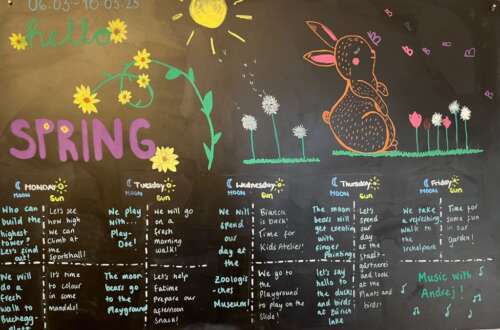 06.03 - 10.03 23
hello
SPRING
MONDAY
MOON SUN
Who can
build the
highest
tower?
Let's find
out!
Let's see
how high
we can
climb at
the
sportshall!
We will
do a
fresh
walk to
Buchegg-
platz
It's time
to colour
in some
mandalas!
Tuesday
MOON SUN
We play
with...
Play-
Doe!
We will go
on a
fresh
morning
walk!
The moon
bears go
to the
Playground
Let's help
Fatime
prepare our
afternoon
snack!
Wednesday
MOON SUN
We will
spend
our
day at
the
Zoologis
ches
Museum!
Bianca
is back!
Time for
Kids Atelier!
We go
to the
Playground
to play on
the slide!
Thursday
MOON SUN
The moon
bears will
get creative
with
finger
Painting!
Let's
spend
our
day
at the
Stadt-
gärtnerei
and look
at the
Plants and
birds!
Let's say
hello to
the ducks
and birds
at Bürkli
Platz!
Friday
MOON SUN
We take
a refreshing
walk to
the
Irchelpark
Time for
some fun
in our
Garden!
Music with
Andrej!